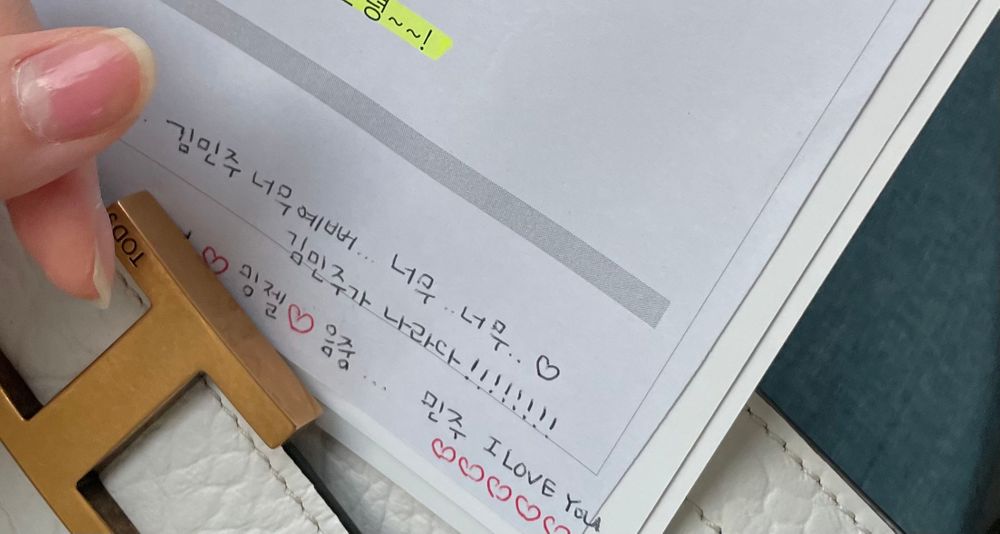 ~~!
김민주 너무 예뻐... 너무..너무..♡
김민주가 나라다!!!!!!!!
♡밍젤♡음중...
민주 I LOVE YOU
♡♡♡♡♡
TODS